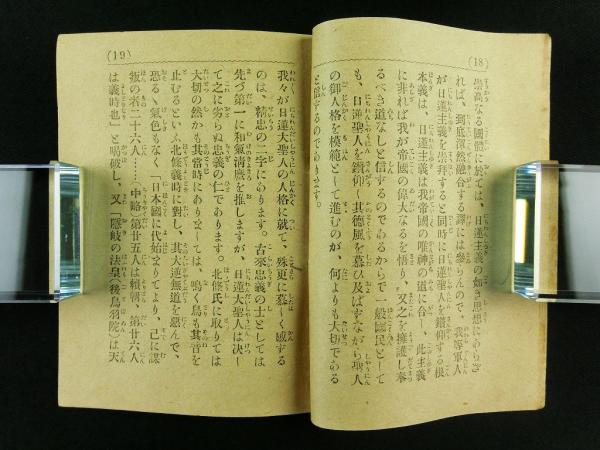 (18)
崇高なる國體に於ては、日蓮主義の如き思想にあらざ
れば、到底渾然融合する譯には參らんので、我等軍人
が日蓮主義を崇拜すると同時に日蓮聖人を鑽仰する根
本義は、日蓮主義は我帝國の唯神の道に合し、此主義
に非れば我が帝國の偉大なるを悟り、又之を擁護し奉
るべき道なしと信ずるのであるからで一般國民として
も、日蓮聖人を鑽仰し其德風を慕ひ及ばずながら聖人
の御人格を模範として進むのが、何よりも大切である
と信ずるのであります。
(19)
我々が日蓮大聖人の人格に就て、殊更に慕しく感ずる
のは、精忠の二字にあります。古來忠義の士としては
先づ第一に和氣淸麿を推しますが、日蓮大聖人は決し
て之に劣らぬ忠義の仁であります。北條氏に取りては
大切の然かも其當時にありましては、鳴く鳥も其音を
止むるといふ北條義時に對し、其大逆無道を惡んで、
恐るゝ氣色もなく「日本國に代始まりてより、已に謀
叛の者二十六人……中略)第廿五人は賴朝、第廿六人
は義時也」と喝破し、又「隱岐の法皇(後鳥羽院)は天